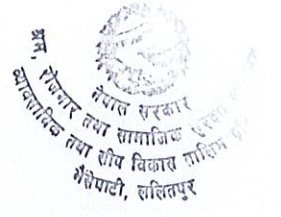 नेपाल सरकार
श्रम, रोजगार तथा सामाजिक सुरक्षा
व्यावसायिक तथा सीप विकास तालिम
भैंसेपाटी, ललितपुर